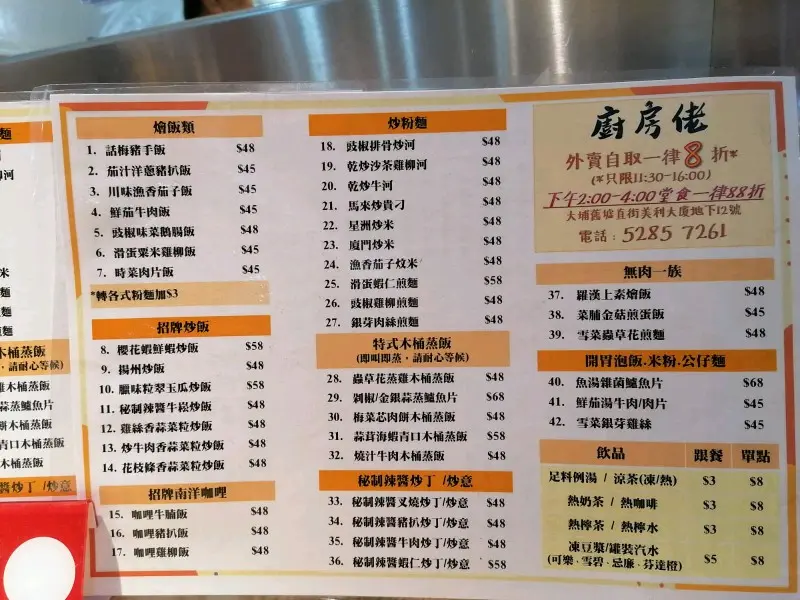 燴飯類
1. 話梅豬手飯 $48
2. 茄汁洋蔥豬扒飯 $45
3. 川味漁香茄子飯 $45
4. 鮮茄牛肉飯 $45
5. 豉椒味菜鵝腸飯 $48
6. 滑蛋粟米雞柳飯 $45
7. 時菜肉片飯 $45
*轉各式粉麵加$3
招牌炒飯
8. 櫻花蝦鮮蝦炒飯 $58
9. 揚州炒飯 $48
10. 臘味粒翠玉瓜炒飯 $58
11. 秘制辣醬牛崧炒飯 $48
12. 雞絲香蒜菜粒炒飯 $48
13. 炒牛肉香蒜菜粒炒飯 $48
14. 花枝條香蒜菜粒炒飯 $48
招牌南洋咖哩
15. 咖哩牛腩飯 $48
16. 咖哩豬扒飯 $48
17. 咖哩雞柳飯 $48
炒粉麵
18. 豉椒排骨炒河 $48
19. 乾炒沙茶雞柳河 $48
20. 乾炒牛河 $48
21. 馬來炒貴刁 $48
22. 星洲炒米 $48
23. 廈門炒米 $48
24. 漁香茄子炆米 $48
25. 滑蛋蝦仁煎麵 $58
26. 豉椒雞柳煎麵 $48
27. 銀芽肉絲煎麵 $48
特式木桶蒸飯
(即叫即蒸，請耐心等候)
28. 蟲草花蒸雞木桶蒸飯 $48
29. 剁椒/金銀蒜蒸鱸魚片 $68
30. 梅菜芯肉餅木桶蒸飯 $48
31. 蒜茸海蝦青口木桶蒸飯 $58
32. 燒汁牛肉木桶蒸飯 $48
秘制辣醬炒丁 /炒意
33. 秘制辣醬叉燒炒丁/炒意 $48
34. 秘制辣醬豬扒炒丁/炒意 $48
35. 秘制辣醬牛肉炒丁/炒意 $48
36. 秘制辣醬蝦仁炒丁/炒意 $58
廚房佬
外賣自取一律8折*
(*只限11:30-16:00)
下午2:00-4:00堂食一律88折
大埔舊墟直街美利大廈地下12號
電話：5285 7261
無肉一族
37. 羅漢上素燴飯 $48
38. 菜脯金菇煎蛋飯 $45
39. 雪菜蟲草花煎麵 $48
開胃泡飯.米粉.公仔麵
40. 魚湯雜菌鱸魚片 $68
41. 鮮茄湯牛肉/肉片 $45
42. 雪菜銀芽雞絲 $45
飲品 跟餐 單點
足料例湯 / 涼茶(凍/熱) $3 $8
熱奶茶 / 熱咖啡 $3 $8
熱檸茶 / 熱檸水 $3 $8
凍豆漿/罐裝汽水 $5 $8
(可樂．雪碧．忌廉．芬達橙)